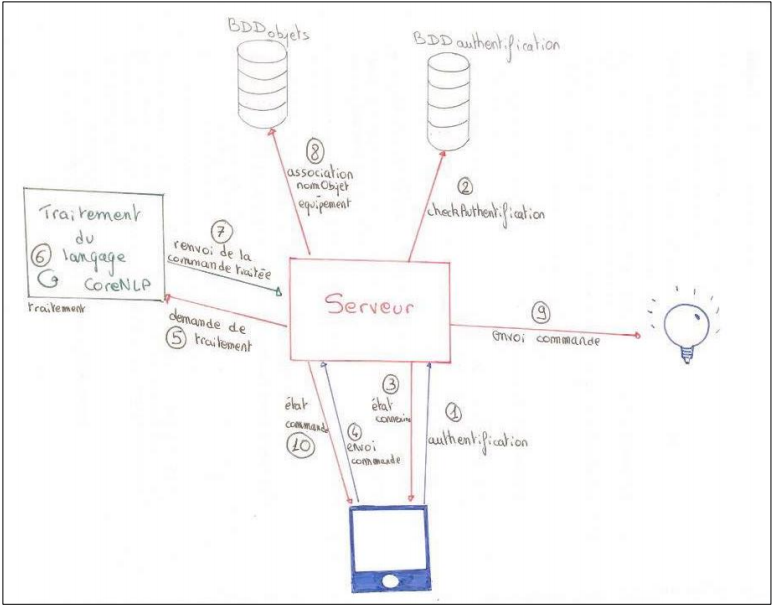 BDD objets
BDD authentification
8
association
nomObjet
équipement
2
checkAuthentification
Traitement
du
6 langage
CoreNLP
traitement
7
renvoi de la
commande traitée
Serveur
demande de
5 traitement
9
envoi commande
état
commande
10
4
envoi
commande
3
état
connexion
1
authentification